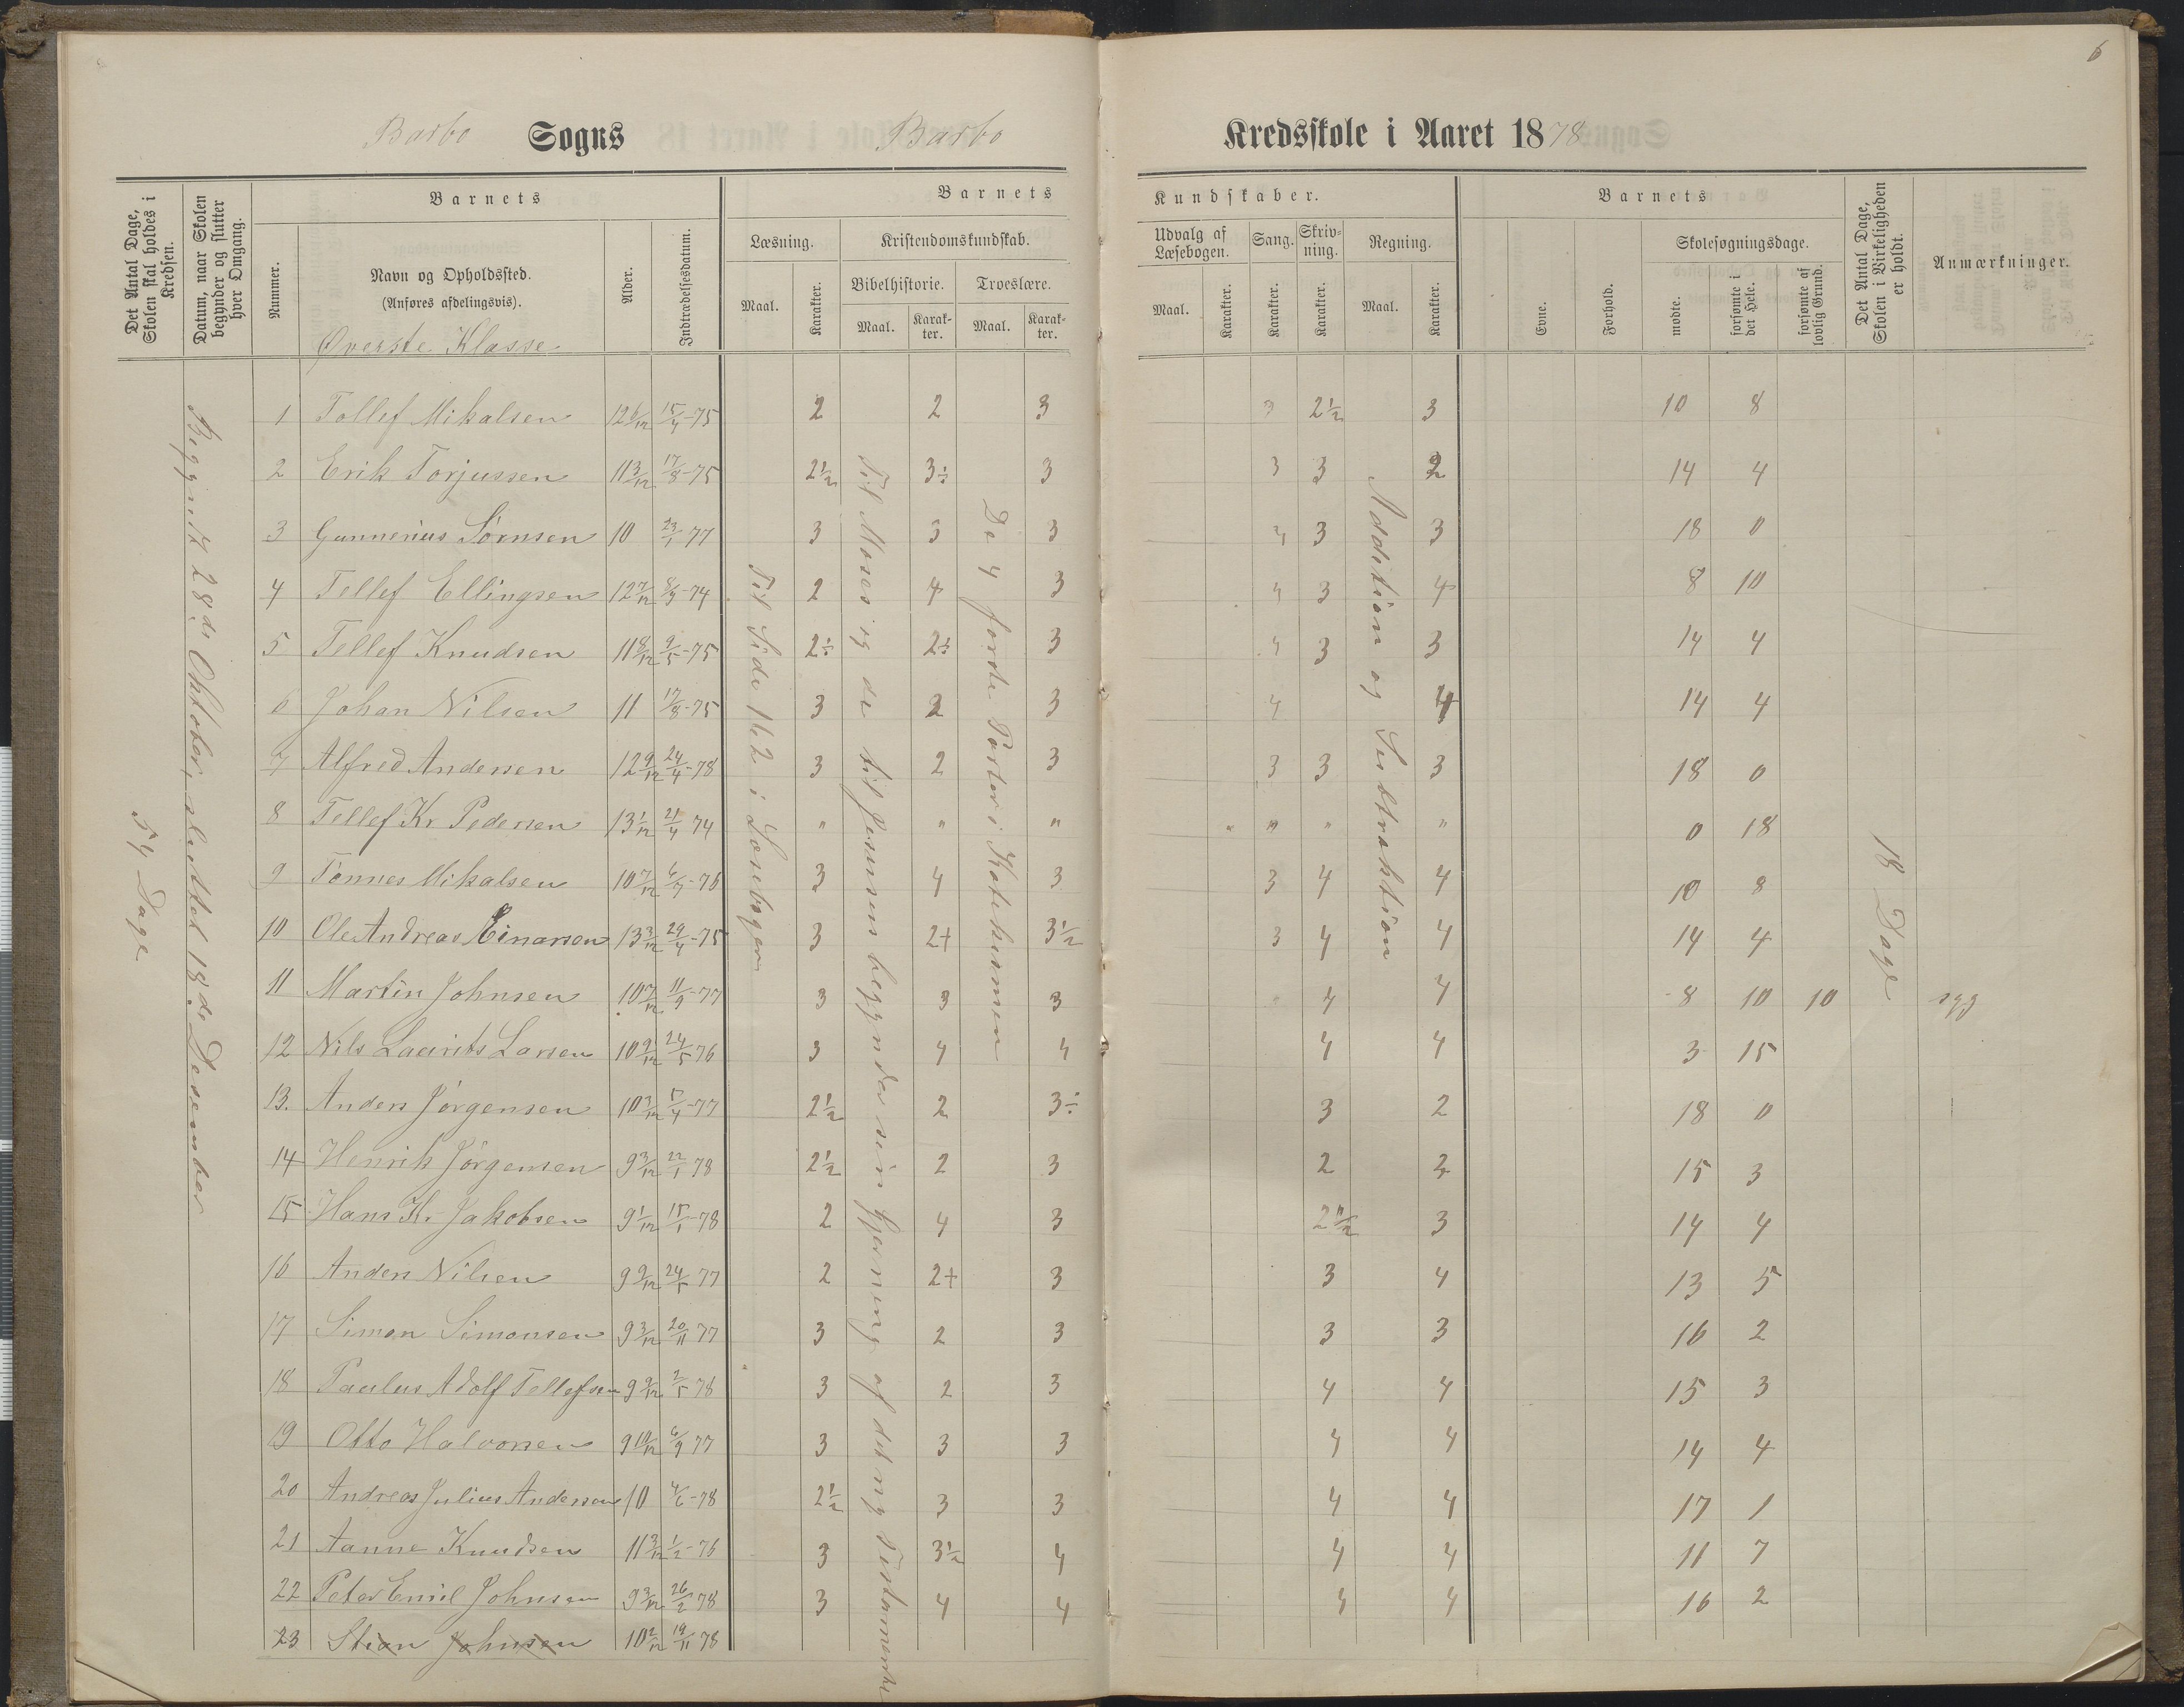 6
Barbo Sogns Barbo Kredsskole i Aaret 1878
Det Antal Dage, Skolen skal holdes i Kredsen.
Datum, naar Skolen begynder og slutter hver Omgang.
Nummer.
Barnets
Navn og Opholdssted.
(Anføres afdelingsvis).
Øverste Klasse
Alder.
Indtrædelsesdatum.
Barnets Kundskaber.
Læsning.
Maal.
Karakter.
Kristendomskundskab.
Bibelhistorie.
Maal.
Karakter.
Troeslære.
Maal.
Karakter.
Udvalg af Læsebogen.
Maal.
Karakter.
Sang.
Karakter.
Skrivning.
Karakter.
Regning.
Maal.
Karakter.
Barnets
Evne.
Forhold.
Skolesøgningsdage.
mødte.
forsømte i det Hele.
forsømte af lovlig Grund.
Det Antal Dage, Skolen i Virkeligheden er holdt.
Anmærkninger.
54 Dage
Begyndt 28de Oktober, sluttet 18de Desember
Til Side 162 i Læsebogen
Til Moses og de til Jesusens begynder sin Gjerning af det ny Testamente
De 4 første Parter i Katekismen
Addition og Subtraktion
18 Dage
1 Tollef Mikalsen 12 6/12 15/4-75 2 2 3 3 2½ 3 10 8
2 Erik Torjussen 11 3/12 17/8-75 2½ 3÷ 3 3 3 2 14 4
3 Gunnerius Sørnsen 10 23/1-77 3 3 3 4 3 3 18 0
4 Tellef Ellingsen 12 7/12 8/9-74 2 4 3 4 3 4 8 10
5 Tellef Knudsen 11 8/12 9/5-75 2÷ 2÷ 3 4 3 3 14 4
6 Johan Nilsen 11 17/8-75 3 2 3 4 4 14 4
7 Alfred Andersen 12 9/12 24/4-78 3 2 3 3 3 3 18 0
8 Tellef Kr Pedersen 13 1/12 21/4 74 " " " " " " " 0 18
9 Tønnes Mikalsen 10 7/12 6/7-76 3 4 3 3 4 4 10 8
10 Ole Andreas Einarsen 13 3/12 29/4-75 3 2+ 3½ 3 4 4 14 4
11 Martin Johnsen 10 7/12 11/9-77 3 3 3 4 4 8 10 10 syg
12 Nils Laurits Larsen 10 9/12 24/5 76 3 4 4 4 4 3 15
13. Anders Jørgensen 10 3/12 5/4-77 2½ 2 3÷ 3 2 18 0
14 Henrik Jørgensen 9 3/12 22/1 78 2½ 2 3 2 3 15 3
15 Hans Kr. Jakobsen 9 1/12 15/1-78 2 4 3 2½ 3 14 4
16 Anders Nilsen 9 9/12 24/5 77 2 2+ 3 3 4 13 5
17 Simon Simonsen 9 3/12 20/11 77 3 2 3 3 3 16 2
18 Paulus Adolf Tellefsen 9 9/12 2/5 78 3 2 3 4 4 15 3
19 Otto Halvorsen 9 10/12 6/9 77 3 3 3 4 4 14 4
20 Andreas Julius Andersen 10 4/6-78 2½ 3 3 4 4 17 1
21 Aanne Knudsen 11 3/12 1/2-76 3 3½ 4 4 4 11 7
22 Peter Emil Johnsen 9 3/12 26/2 78 3 4 4 4 4 16 2
23 Stian Johnsen 10 2/12 19/11 78